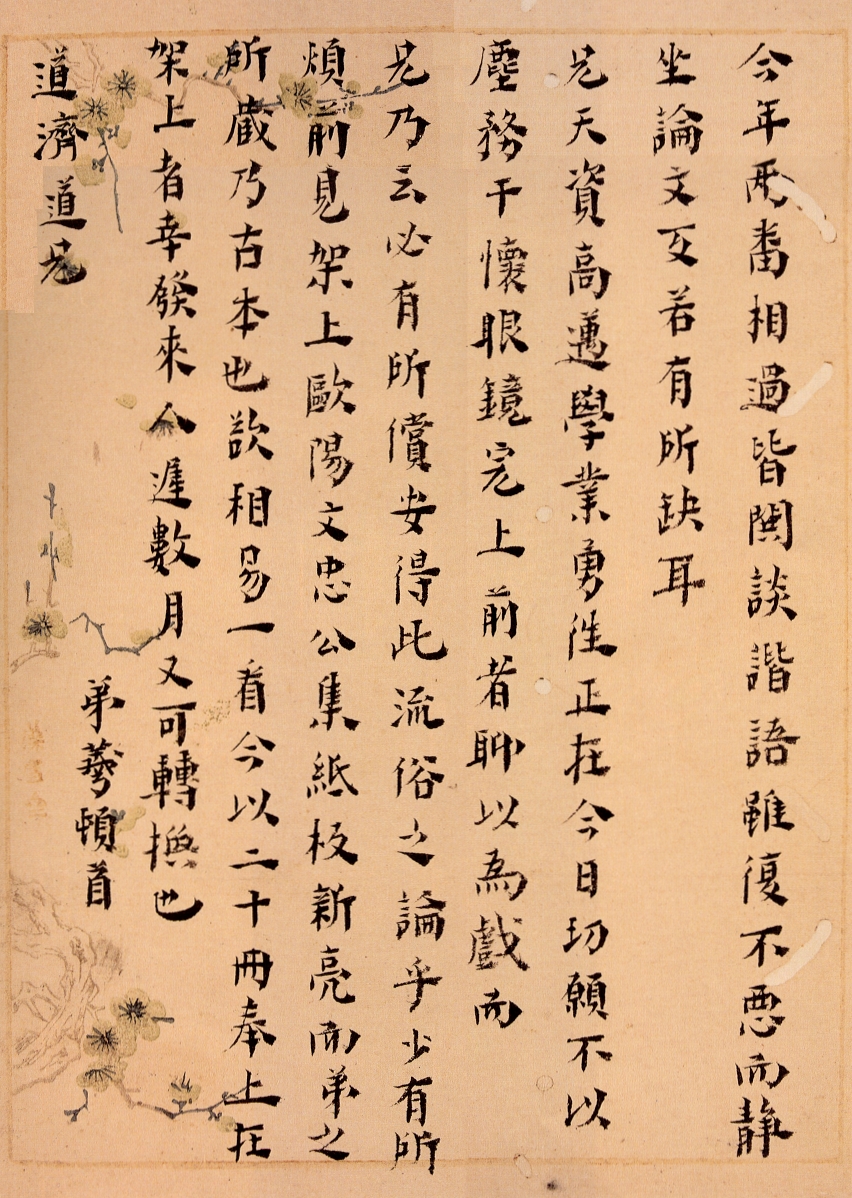 今年兩番相過皆闊談諧語雖復不惡而静
坐論文互若有所缺耳
兄天資高邁學業勇往正在今日切願不以
塵務干懷眼鏡完上前者聊以為戲而
兄乃云必有所償安得此流俗之論乎少有所
煩前見架上歐陽文忠公集紙板新亮而弟之
所蔵乃古本也欲相易一看今以二十冊奉上在
架上者幸發來人遲數月又可轉換也
弟蓴頓首
道濟道兄